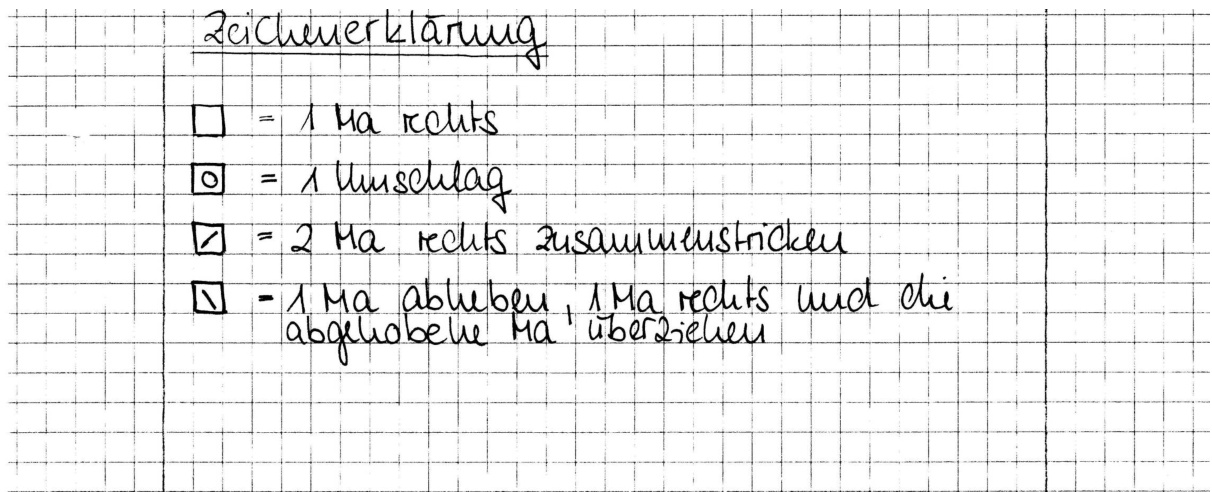 Zeichenerklärung
= 1 Ma rechts
= 1 Umschlag
= 2 Ma rechts zusammenstricken
= 1 Ma abheben, 1 Ma rechts und die
abgehobene Ma überziehen